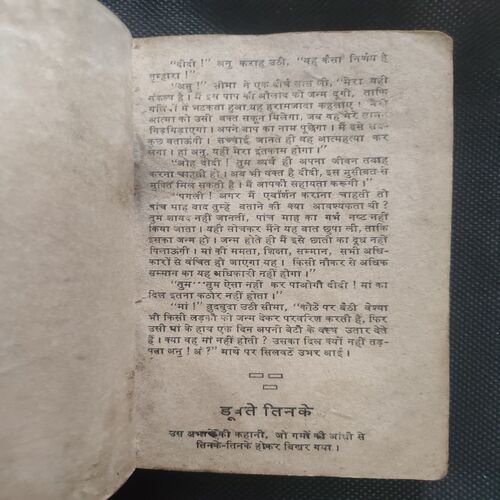 "दीदी !" अनु कराह उठी, "यह कैसा निर्णय है
तुम्हारा !"
"अनु !" सीमा ने एक दीर्घ सांस ली, "मेरा यही
संकल्प है । मैं इस पाप की औलाद को जन्म दूंगी, ताकि
गलियों में भटकता हुआ यह हरामजादा कहलाए । मेरी
आत्मा को उसी वक्त सकून मिलेगा, जब यह मेरे
गिड़गिड़ाएगा । अपने बाप का नाम पूछेगा । मैं इसे सब-
कुछ बताऊंगी । सच्चाई जानते ही यह आत्महत्या कर
लेगा । हां अनु, यही मेरा इंतकाम होगा ।"
"ओह दीदी ! तुम व्यर्थ ही अपना जीवन तबाह
करना चाहती हो । अब भी वक्त है दीदी, इस मुसीबत से
मुक्ति मिल सकती है । मैं आपकी सहायता करूंगी ।"
"पगली ! अगर मैं एबार्शन कराना चाहती तो
पांच माह बाद तुम्हें बताने की क्या आवश्यकता थी ?
तुम शायद नहीं जानतीं, पांच माह का गर्भ नष्ट नहीं
किया जाता । यही सोचकर मैंने यह बात छुपा ली, ताकि
इसका जन्म हो । जन्म होते ही मैं इसे छाती का दूध नहीं
पिलाऊंगी । मां की ममता, शिक्षा, सम्मान, सभी अधि-
कारों से वंचित हो जाएगा यह । किसी नौकर से अधिक
सम्मान का यह अधिकारी नहीं होगा ।"
"तुम—तुम ऐसा नहीं कर पाओगी दीदी ! मां का
दिल इतना कठोर नहीं होता ।"
"मां !" बुदबुदा उठी सीमा, "कोठे पर बैठी वेश्या
भी किसी लड़की को जन्म देकर परवरिश करती है, फिर
उसी मां के हाथ एक दिन अपनी बेटी के वस्त्र उतार देते
हैं । क्या वह मां नहीं होती ? उसका दिल क्यों नहीं तड़-
पता अनु ! अं ?" माथे पर सिलवटें उभर आई ।
डूबते तिनके
उस अभागे की कहानी, जो गमों की आंधी से
तिनके-तिनके होकर बिखर गया ।